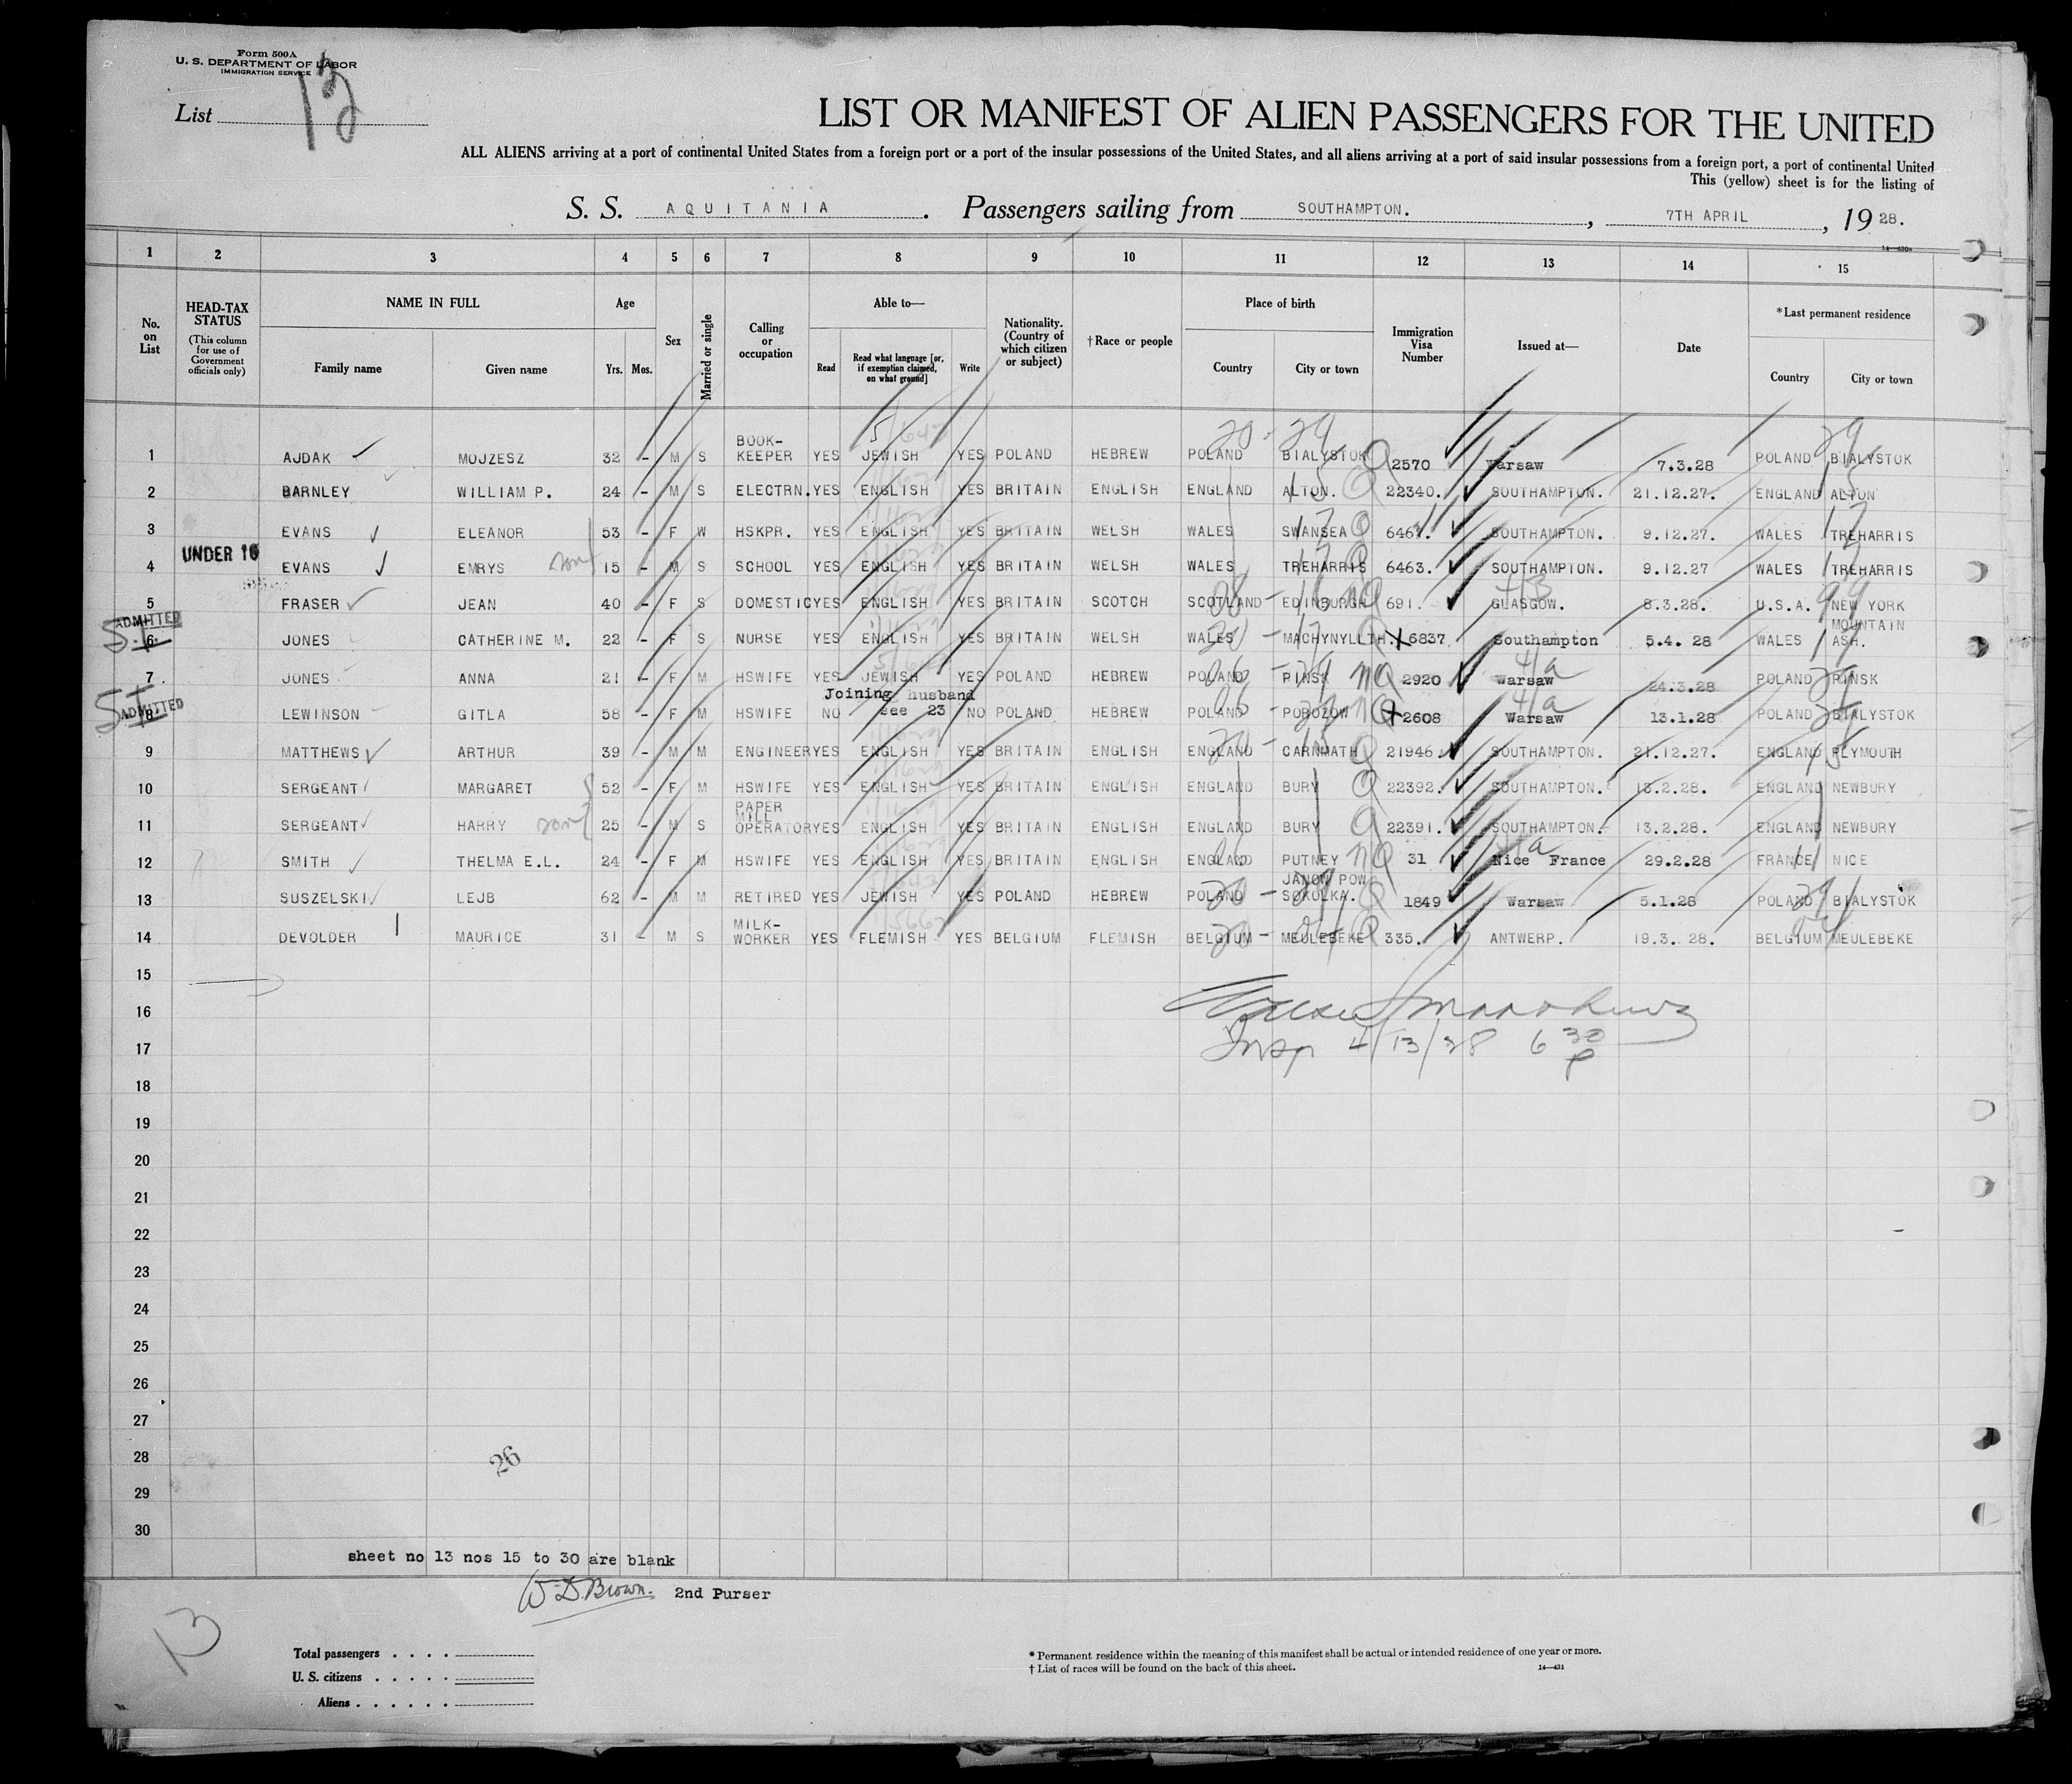 Form 500A
U. S. DEPARTMENT OF LABOR
IMMIGRATION SERVICE
List 13
LIST OR MANIFEST OF ALIEN PASSENGERS FOR THE UNITED
ALL ALIENS arriving at a port of continental United States from a foreign port or a port of the insular possessions of the United States, and all aliens arriving at a port of said insular possessions from a foreign port, a port of continental United
This (yellow) sheet is for the listing of
S. S. AQUITANIA. Passengers sailing from SOUTHAMPTON., 7TH APRIL, 19 28.
1 2 3 4 5 6 7 8 9 10 11 12 13 14 15
No. on List
HEAD-TAX STATUS (This column for use of Government officials only)
NAME IN FULL Family name Given name
Age Yrs. Mos.
Sex
Married or single
Calling or occupation
Able to— Read Read what language [or, if exemption claimed, on what ground] Write
Nationality. (Country of which citizen or subject)
†Race or people
Place of birth Country City or town
Immigration Visa Number
Issued at—
Date
*Last permanent residence Country City or town
1 AJDAK MOJZESZ 32 - M S BOOK-KEEPER YES JEWISH YES POLAND HEBREW POLAND BIALYSTOK 2570 Warsaw 7.3.28 POLAND BIALYSTOK
2 BARNLEY WILLIAM P. 24 - M S ELECTRN. YES ENGLISH YES BRITAIN ENGLISH ENGLAND ALTON. 22340. SOUTHAMPTON. 21.12.27. ENGLAND ALTON
3 EVANS ELEANOR 53 - F W HSKPR. YES ENGLISH YES BRITAIN WELSH WALES SWANSEA SOUTHAMPTON. 9.12.27. WALES TREHARRIS
UNDER 16
4 EVANS EMRYS son 15 - M S SCHOOL YES ENGLISH YES BRITAIN WELSH WALES TREHARRIS 6463. SOUTHAMPTON. 9.12.27 WALES TREHARRIS
5 FRASER JEAN 40 - F S DOMESTIC YES ENGLISH YES BRITAIN SCOTCH SCOTLAND EDINBURGH 691. GLASGOW. 8.3.28. U.S.A. NEW YORK
ADMITTED
6 JONES CATHERINE M. 22 - F S NURSE YES ENGLISH YES BRITAIN WELSH WALES MACHYNYLLTH. 6837 Southampton 5.4. 28 WALES MOUNTAIN ASH.
7 JONES ANNA 21 - F M HSWIFE YES JEWISH YES POLAND HEBREW POLAND PINSK 2920 Warsaw 24.3.28 POLAND PINSK
Joining husband
ADMITTED
8 LEWINSON GITLA 58 - F M HSWIFE NO see 23 NO POLAND HEBREW POLAND POROZOW 2608 Warsaw 13.1.28 POLAND BIALYSTOK
9 MATTHEWS ARTHUR 39 - M M ENGINEER YES ENGLISH YES BRITAIN ENGLISH ENGLAND CARNMATH 21946. SOUTHAMPTON. 21.12.27. ENGLAND PLYMOUTH
10 SERGEANT MARGARET 52 - F M HSWIFE YES ENGLISH YES BRITAIN ENGLISH ENGLAND BURY 22392. SOUTHAMPTON. 13.2.28. ENGLAND NEWBURY
11 SERGEANT HARRY son 25 - M S PAPER MILL OPERATOR YES ENGLISH YES BRITAIN ENGLISH ENGLAND BURY 22391. SOUTHAMPTON. 13.2.28. ENGLAND NEWBURY
12 SMITH THELMA E.L. 24 - F M HSWIFE YES ENGLISH YES BRITAIN ENGLISH ENGLAND PUTNEY 31 Nice France 29.2.28 FRANCE NICE
13 SUSZELSKI LEJB 62 - M M RETIRED YES JEWISH YES POLAND HEBREW POLAND JANOW POW SOKOLKA. 1849 Warsaw 5.1.28 POLAND BIALYSTOK
14 DEVOLDER MAURICE 31 - M S MILK-WORKER YES FLEMISH YES BELGIUM FLEMISH BELGIUM MEULEBEKE 335. ANTWERP. 19.3. 28. BELGIUM MEULEBEKE
15
16
17 Insp 4/13/28 6 30 P
18
19
20
21
22
23
24
25
26
27
28
26
29
30
sheet no 13 nos 15 to 30 are blank
W D. Brown. 2nd Purser
13
Total passengers
U. S. citizens
Aliens
* Permanent residence within the meaning of this manifest shall be actual or intended residence of one year or more.
† List of races will be found on the back of this sheet.
14—431